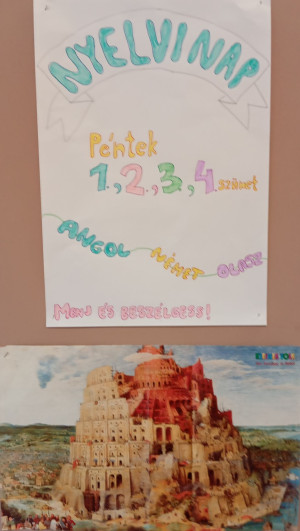 NYELVI NAP
Péntek
1., 2., 3., 4. szünet
ANGOL NÉMET OLASZ
MENJ ÉS BESZÉLGESS!